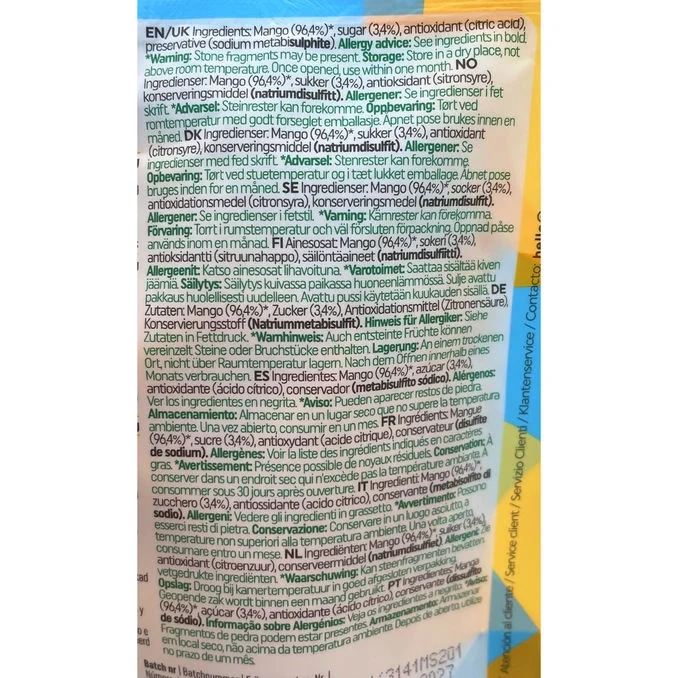 EN/UK Ingredients: Mango (96,4%)*, sugar (3,4%), antioxidant (citric acid),
preservative (sodium metabisulphite). Allergy advice: See ingredients in bold.
*Warning: Stone fragments may be present. Storage: Store in a dry place, not
above room temperature. Once opened, use within one month. NO
Ingredienser: Mango (96,4%)*, sukker (3,4%), antioksidant (sitronsyre),
konserveringsmiddel (natriumdisulfitt). Allergener: Se ingredienser i fet
skrift. *Advarsel: Steinrester kan forekomme. Oppbevaring: Tørt ved
romtemperatur med godt forseglet emballasje. Åpnet pose brukes innen en
måned. DK Ingredienser: Mango (96,4%)*, sukker (3,4%), antioxidant
(citronsyre), konserveringsmiddel (natriumdisulfit). Allergener: Se
ingredienser med fed skrift. *Advarsel: Stenrester kan forekomme.
Opbevaring: Tørt ved stuetemperatur og i tæt lukket emballage. Åbnet pose
bruges inden for en måned. SE Ingredienser: Mango (96,4%)*, socker (3,4%),
antioxidationsmedel (citronsyra), konserveringsmedel (natriumdisulfit).
Allergener: Se ingredienser i fetstil. *Varning: Kärnrester kan förekomma.
Förvaring: Torrt i rumstemperatur och väl försluten förpackning. Öppnad påse
används inom en månad. FI Ainesosat: Mango (96,4%)*, sokeri (3,4%),
antioksidantti (sitruunahappo), säilöntäaineet (natriumdisulfiitti).
Allergeenit: Katso ainesosat lihavoituna. *Varotoimet: Saattaa sisältää kiven
jäämiä. Säilytys: Säilytys kuivassa paikassa huoneenlämmössä. Sulje avattu
pakkaus huolellisesti uudelleen. Avattu pussi käytetään kuukauden sisällä. DE
Zutaten: Mango (96,4%)*, Zucker (3,4%), Antioxidationsmittel (Zitronensäure),
Konservierungsstoff (Natriummetabisulfit). Hinweis für Allergiker: Siehe
Zutaten in Fettdruck. *Warnhinweis: Auch entsteinte Früchte können
vereinzelt Steine oder Bruchstücke enthalten. Lagerung: An einem trockenen
Ort, nicht über Raumtemperatur lagern. Nach dem Öffnen innerhalb eines
Monats verbrauchen. ES Ingredientes: Mango (96,4%)*, azucar (3,4%),
antioxidante (ácido cítrico), conservador (metabisulfito sódico). Alérgenos:
Ver los ingredientes en negrita. *Aviso: Pueden aparecer restos de piedra.
Almacenamiento: Almacenar en un lugar seco que no supere la temperatura
ambiente. Una vez abierto, consumir en un mes. FR Ingrédients: Mangue
(96,4%)*, sucre (3,4%), antioxydant (acide citrique), conservateur (disulfite
de sodium). Allergènes: Voir la liste des ingrédients indiqués en caractères
gras. *Avertissement: Présence possible de noyaux résiduels. Conservation: À
conserver dans un endroit sec qui n'excède pas la température ambiante. À
consommer sous 30 jours après ouverture. IT Ingredienti: Mango (96,4%)*,
zucchero (3,4%), antiossidante (acido citrico), conservante (metabisolfito di
sodio). Allergeni: Vedere gli ingredienti in grassetto. *Avvertimento: Possono
esserci resti di pietra. Conservazione: Conservare in un luogo asciutto, a
temperature non superiori alla temperatura ambiente. Una volta aperto,
consumare entro un mese. NL Ingrediënten: Mango (96,4%)*, suiker (3,4%),
antioxidant (citroenzuur), conserveermiddel (natriumdisulfiet). Allergeni: Zie
vetgedrukte ingrediënten. *Waarschuwing: Kan steenfragmenten bevatten.
Opslag: Droog bij kamertemperatuur in goed afgesloten verpakking.
Geopende zak wordt binnen een maand gebruikt. PT Ingredientes: Manga
(96,4%)*, açúcar (3,4%), antioxidante (ácido cítrico), conservante (dissulfito
de sódio). Informação sobre Alergénios: Veja os ingredientes a negrito. *Aviso:
Fragmentos de pedra podem estar presentes. Armazenamento: Armazenar
em local seco, não acima da temperatura ambiente. Depois de aberto, utilize
no prazo de um mês.
Batch nr | Batchnummer
3141MS201
2027
Atención al cliente / Service client / Servizio Clienti / Klantenservice / Contacto: hello@